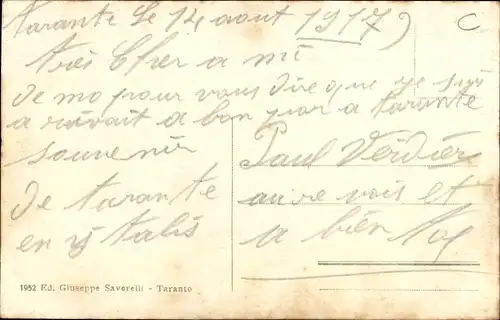 tarante Le 14 aout 1917
C
très Cher a mi
de mo pour vous dire que je suis
a rivait a bon por a tarante
souvenir
de tarante
en ytalis
Paul Verdier
au re vois et
a bien
1952 Ed. Giuseppe Saverelli - Taranto